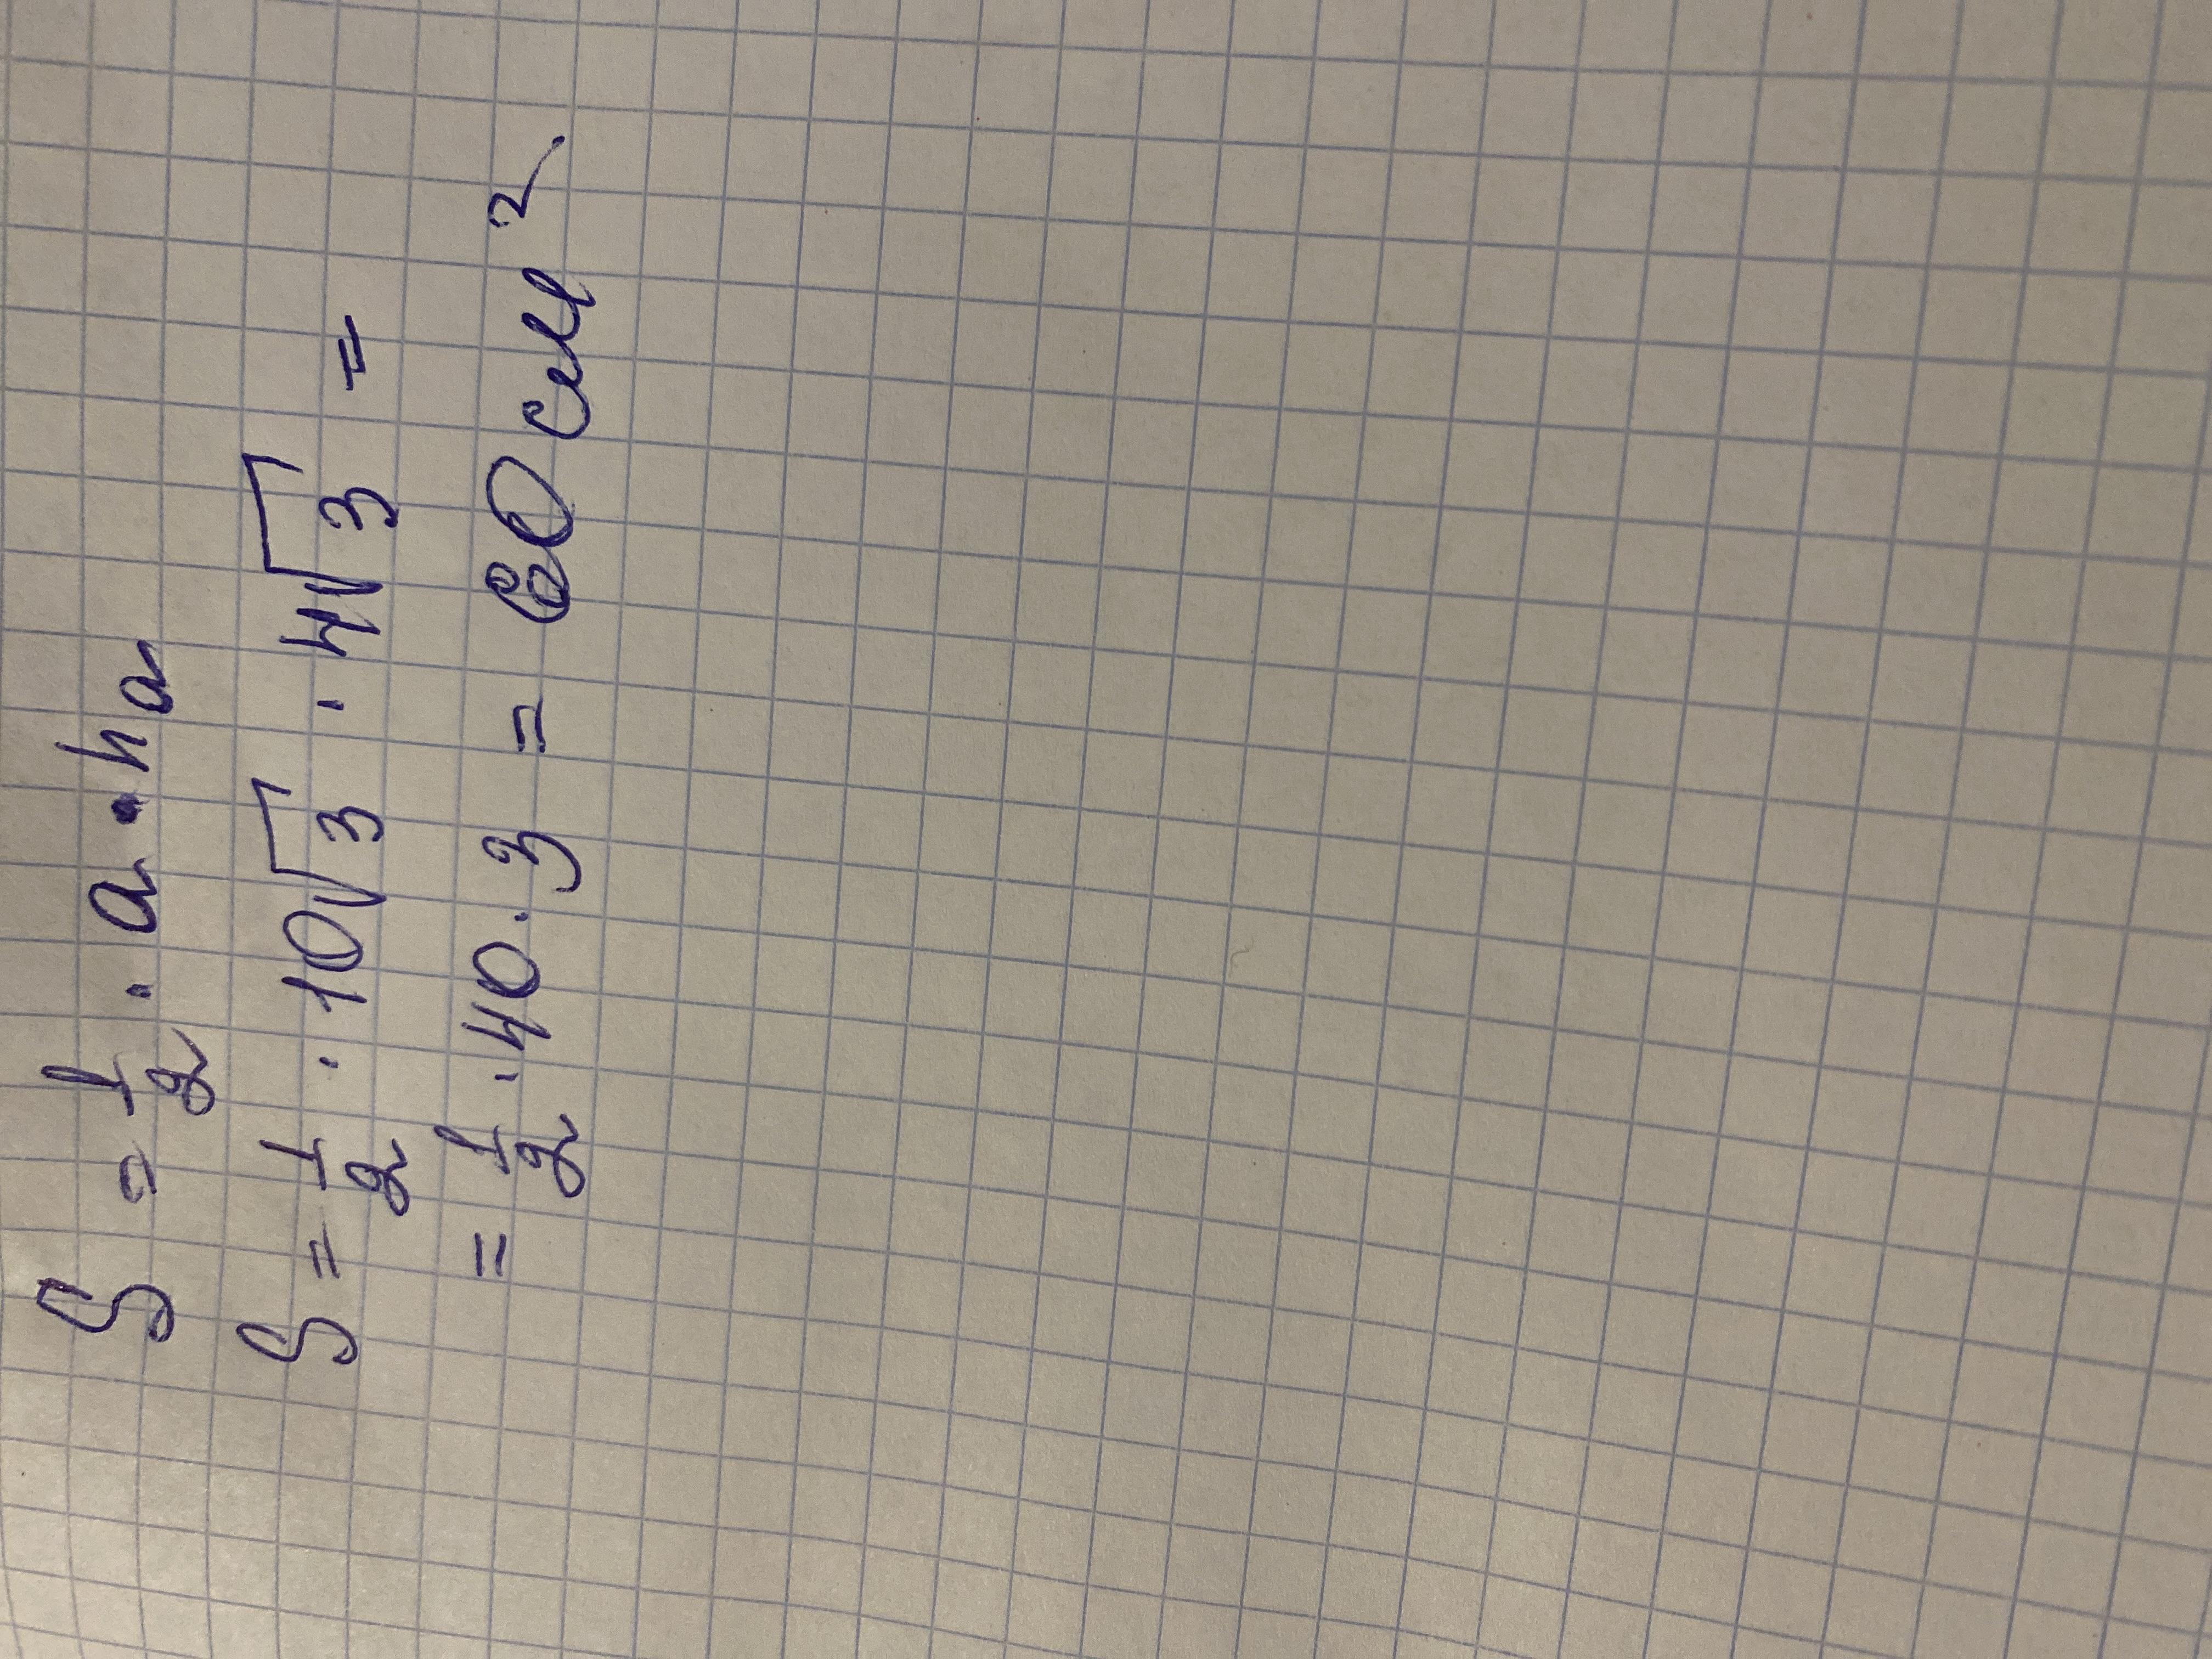 S = 1/2 · a · hₐ
S = 1/2 · 10√3 · 4√3 =
= 1/2 · 40 · 3 = 60 см²